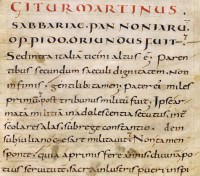 GITUR MARTINUS
SABBARIAE. PANNONIARU
OPPIDO. ORIUNDUS FUIT.
Sed intra italiā ticini altus ē. Paren
tibus secundum saeculi dignitatem. Non
infimis. gentilib; tamen; pater ei miles
primū. post tribunus militū fuit; Ipse ar
matā militiā in adolescentia secutus. int
scolares alas sub rege constantio. de
sub iuliano esare militavit; Non tamen
sponte. quia a primis fere annis divinā po
tius servitutē sacra inlustris pueri inspi